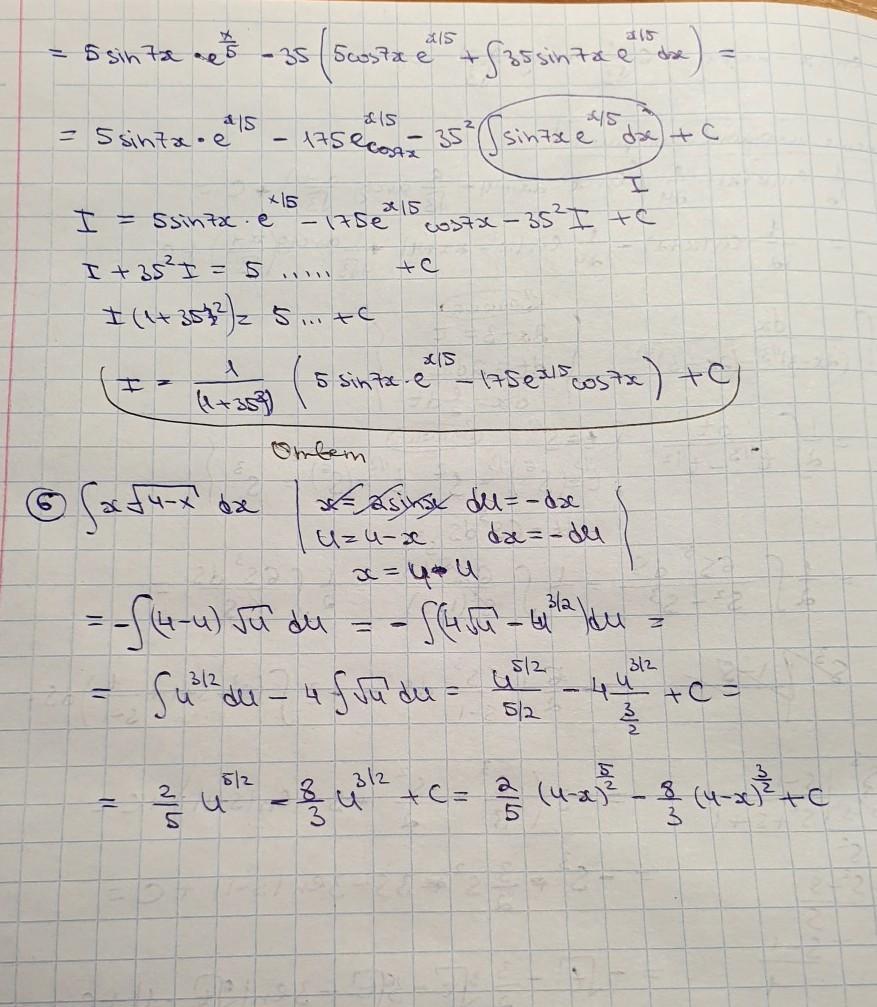 = 5 sin7x · e^{x/5} - 35 ( 5cos7x e^{x/5} + ∫ 35 sin7x e^{x/5} dx ) =
= 5 sin7x · e^{x/5} - 175e^{x/5} cos7x - 35² ( ∫ sin7x e^{x/5} dx ) + C
I
I = 5sin7x · e^{x/5} - 175e^{x/5} cos7x - 35² I + C
I + 35² I = 5 ..... + C
I (1+35²) = 5 ... + C
I = 1/(1+35²) ( 5 sin7x · e^{x/5} - 175e^{x/5} cos7x ) + C
Ответ
⑥ ∫ x √(4-x) dx | x = 2sinx du = -dx
u = 4-x dx = -du
x = 4-u
= -∫(4-u) √u du = -∫(4√u - u^{3/2})du =
= ∫ u^{3/2} du - 4 ∫ √u du = u^{5/2}/(5/2) - 4 u^{3/2}/(3/2) + C =
= 2/5 u^{5/2} - 8/3 u^{3/2} + C = 2/5 (4-x)^{5/2} - 8/3 (4-x)^{3/2} + C